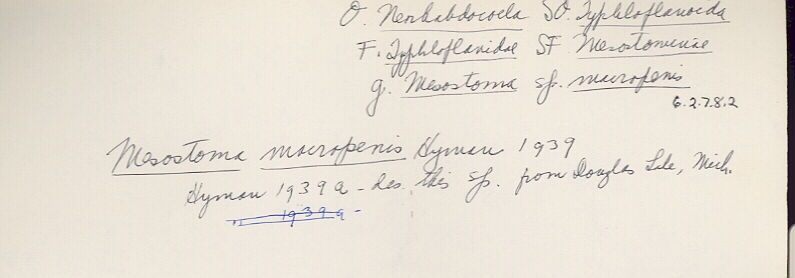 O. Neorhabdocoela SO. Typhloplanoida
F. Typhloplanidae SF Mesostominae
g. Mesostoma sp. macropenis
6.2.7.8.2
Mesostoma macropenis Hyman 1939
Hyman 1939a - des. this sp. from Douglas Lake, Mich.
" 1939a -